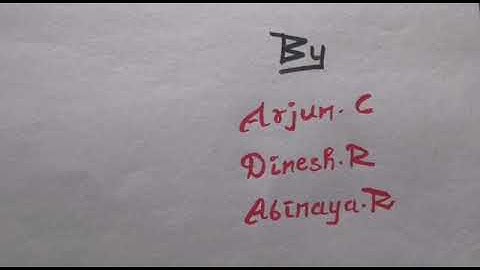 By
Arjun. C
Dinesh.R
Abinaya.R